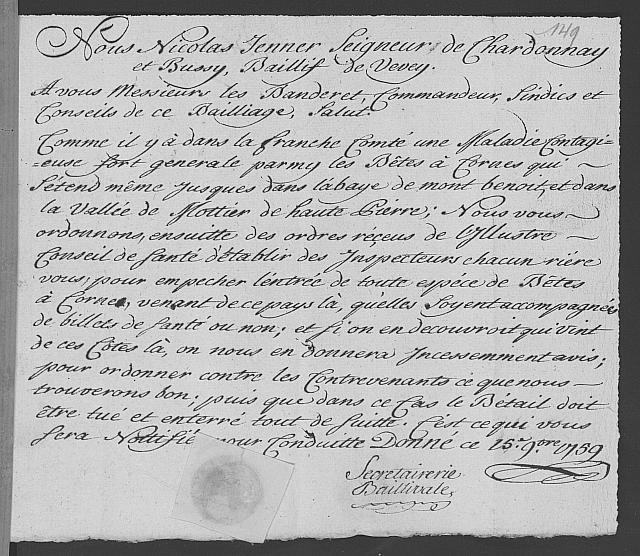 149
Nous Nicolas Jenner Seigneur de Chardonnay
et Bussy, Baillif de Vevey.
A vous Messieurs les Banderet, Commandeur, Sindics et
Conseils de ce Bailliage, Salut.
Comme il y à dans la franche Comté une Maladie Contagi=
=euse fort generale parmy les Bêtes à Cornes qui
S'étend même Jusques dans l'abaye de mont benoit, et dans
la Vallée de Mottier de haute Pierre; Nous vous
ordonnons, ensuitte des ordres réçeus de l'Illustre
Conseil de Santé d'établir des Inspecteurs chacun riére
vous, pour empecher l'éntrée de toute espéce de Bêtes
à Cornes, venant de ce pays là, qu'elles Soyent accompagnées
de billets de Santé ou non; et Si on en decouvroit qui vint
de ces Côtes là, on nous en donnera Incessemment avis;
pour ordonner contre les Contrevenants ce que nous
trouverons bon; puis que dans ce Cas le Bétail doit
être tué et enterré tout de Suitte. C'est ce qui vous
Sera Nottifié pour Conduitte Donné ce 15e. 9bre. 1759
Secretairerie
Baillivale,